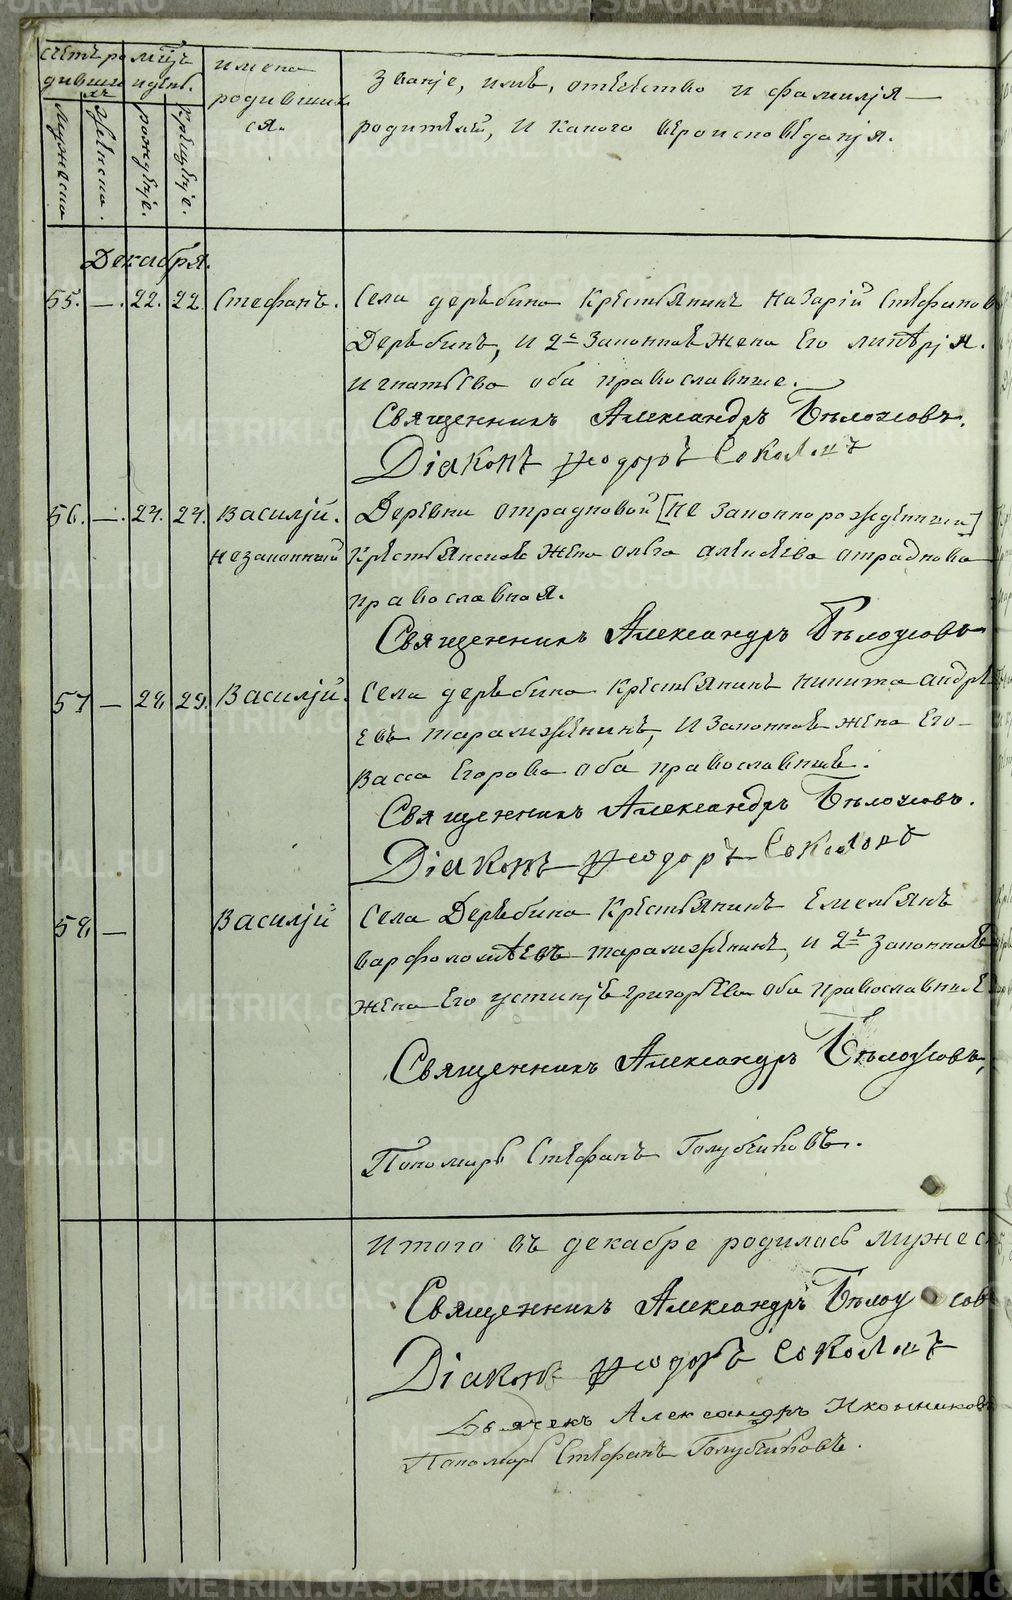 Счетъ ро мѣсѧцъ
дивших и день.
ся
Мужеска Женска. рождење. Крещење.
имена
родивших
ся.
Званје, имя, отчество и фамилјя
родителей, и какого вероисповеданјя.
Декабря.
55. —. 22. 22. Стефанъ. Села деребина Крестьянинъ Назарій Стефановъ
Деребинъ, и 2й законная жена его
Игнатьева оба православные.
Священникъ Александръ Белоусовъ.
Діаконъ Феодоръ Соколовъ
56. —. 27. 27. Василјй. Деревни отрадновой [не законнорожденный]
незаконный Крестьянская жена ольга алексеева отраднова
православная.
Священникъ Александръ Белоусовъ
57 — 28 29. Василјй. Села деребина Крестьянинъ никита андре
евъ таралженинъ, и законная жена его
Васса Егорова оба православные.
Священникъ Александръ Белоусовъ.
Діаконъ Феодоръ Соколовъ
58 — Василјй Села Деребина Крестьянинъ Емельянъ
варфоломѣевъ таралженинъ, и 2я законная
жена его устинја григорьева оба православные
Священникъ Александръ Белоусовъ,
Пономарь Стефанъ Голубчиковъ.
Итого въ декабре родилось мужес
Священникъ Александръ Белоусовъ
Діаконъ Феодоръ Соколовъ
Дьячекъ Александръ Иконниковъ
Пономарь Стефанъ Голубчиковъ.
METRIKI.GASO-URAL.RU